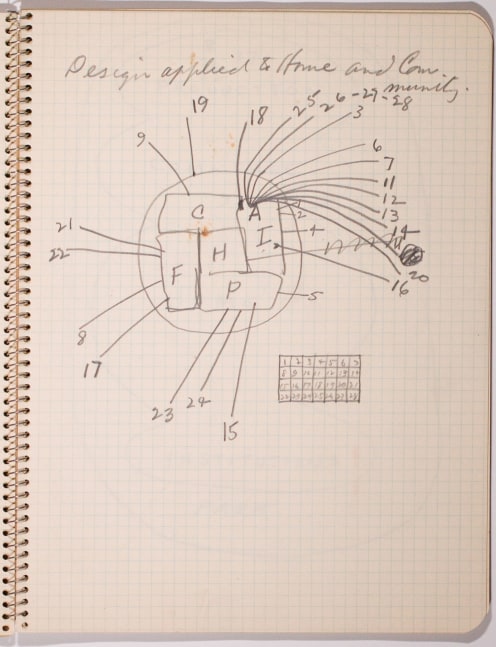 Design applied to Home and Com-
munity.
19
18
25
26-27-28
3
9
6
7
11
12
13
14
20
16
C
A
1
2
4
I
H
F
P
5
21
22
8
17
23
24
15
1 2 3 4 5 6 7
8 9 10 11 12 13 14
15 16 17 18 19 20 21
22 23 24 25 26 27 28